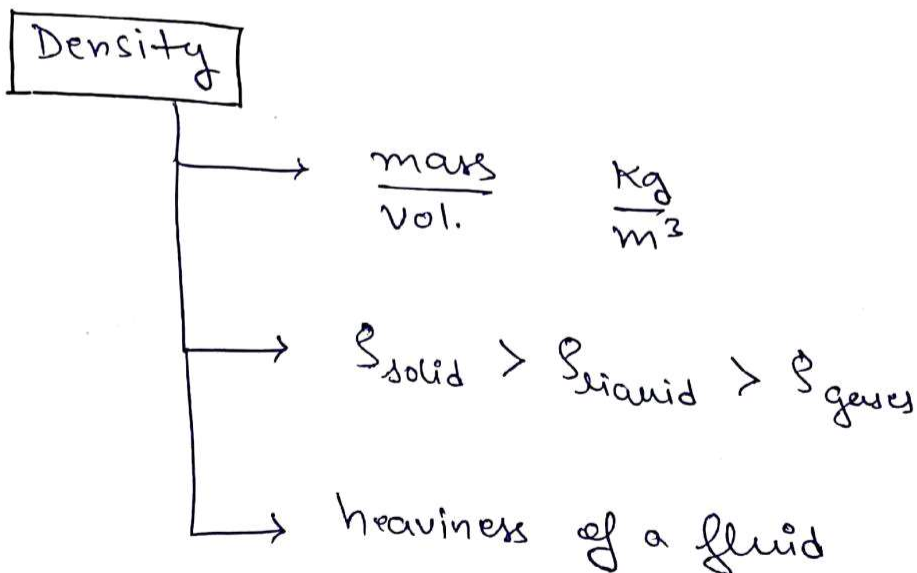 Density
mass / vol. Kg / m³
ρsolid > ρliquid > ρgases
heaviness of a fluid